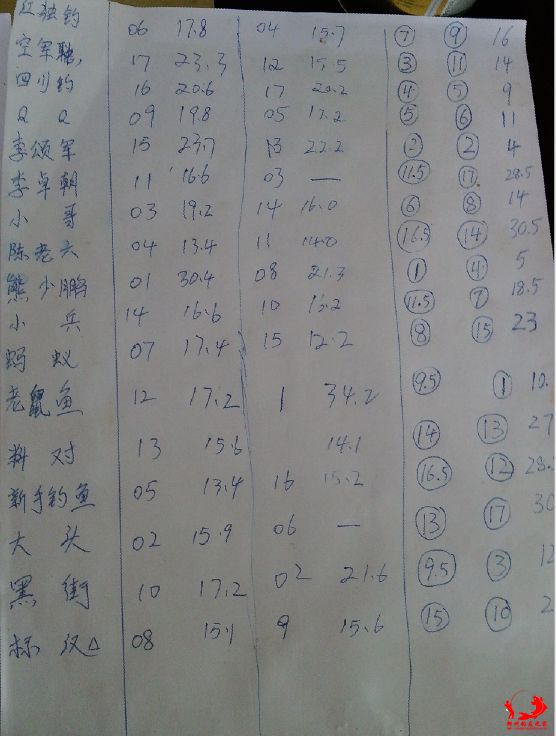 红独钓 06 17.8 04 15.7 ⑦ ⑨ 16
空军聪, 17 23.3 12 15.5 ③ ⑪ 14
四川钓 16 20.6 17 20.2 ④ ⑤ 9
Q Q 09 19.8 05 17.2 ⑤ ⑥ 11
李颂军 15 23.7 13 22.2 ② ② 4
李卓朝 11 16.6 03 — 11.5 ⑰ 28.5
小 哥 03 19.2 14 16.0 ⑥ ⑧ 14
陈老六 04 13.4 11 14.0 16.5 ⑭ 30.5
熊少鹏 01 30.4 08 21.3 ① ④ 5
小 兵 14 16.6 10 16.2 11.5 ⑦ 18.5
蚂 蚁 07 17.4 15 12.2 ⑧ ⑮ 23
老鼠鱼 12 17.2 1 34.2 9.5 ① 10.
料 对 13 15.6 14.1 ⑭ ⑬ 27
新手钓鱼 05 13.4 16 15.2 16.5 ⑫ 28.
大 头 02 15.9 06 — ⑬ ⑰ 30
黑 街 10 17.2 02 21.6 9.5 ③ 12
标 汉△ 08 15.1 9 15.6 ⑮ ⑩ 2